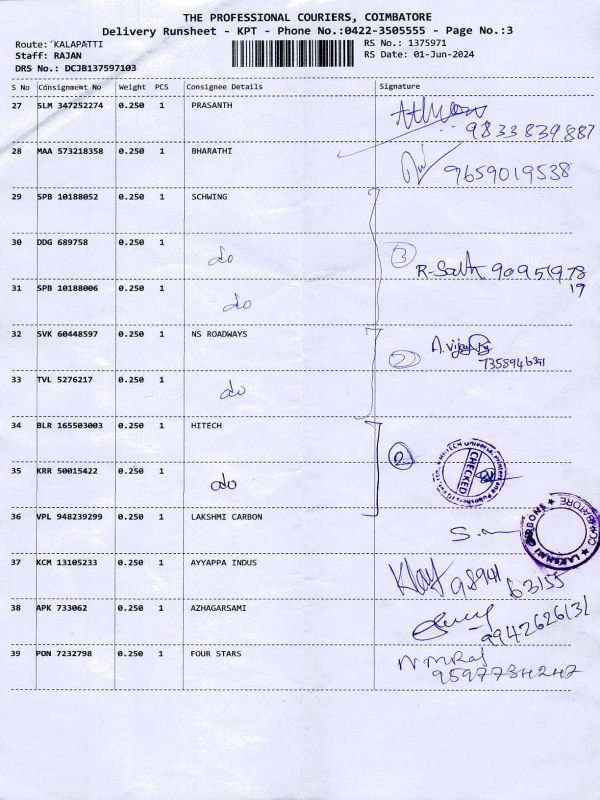 THE PROFESSIONAL COURIERS, COIMBATORE
Delivery Runsheet - KPT - Phone No.:0422-3505555 - Page No.:3
Route: KALAPATTI RS No.: 1375971
Staff: RAJAN RS Date: 01-Jun-2024
DRS No.: DCJB137597103
S No Consignment No Weight PCS Consignee Details Signature
27 SLM 347252274 0.250 1 PRASANTH
9833839887
28 MAA 573218358 0.250 1 BHARATHI
9659019538
29 SPB 10188052 0.250 1 SCHWING
30 DDG 689758 0.250 1 do 3
R-Sath 90951978
19
31 SPB 10188006 0.250 1 do
32 SVK 60448597 0.250 1 NS ROADWAYS
A. Vijay
2 7358946391
33 TVL 5276217 0.250 1 do
34 BLR 165503003 0.250 1 HITECH
2 CHECKED
35 KRR 50015422 0.250 1 do
36 VPL 948239299 0.250 1 LAKSHMI CARBON
LAKSHMI CARBONS ★ COIMBATORE ★
37 KCM 13105233 0.250 1 AYYAPPA INDUS
98941 63155
38 APK 733062 0.250 1 AZHAGARSAMI
9942626131
39 PON 7232798 0.250 1 FOUR STARS
N M Raj
9597784247